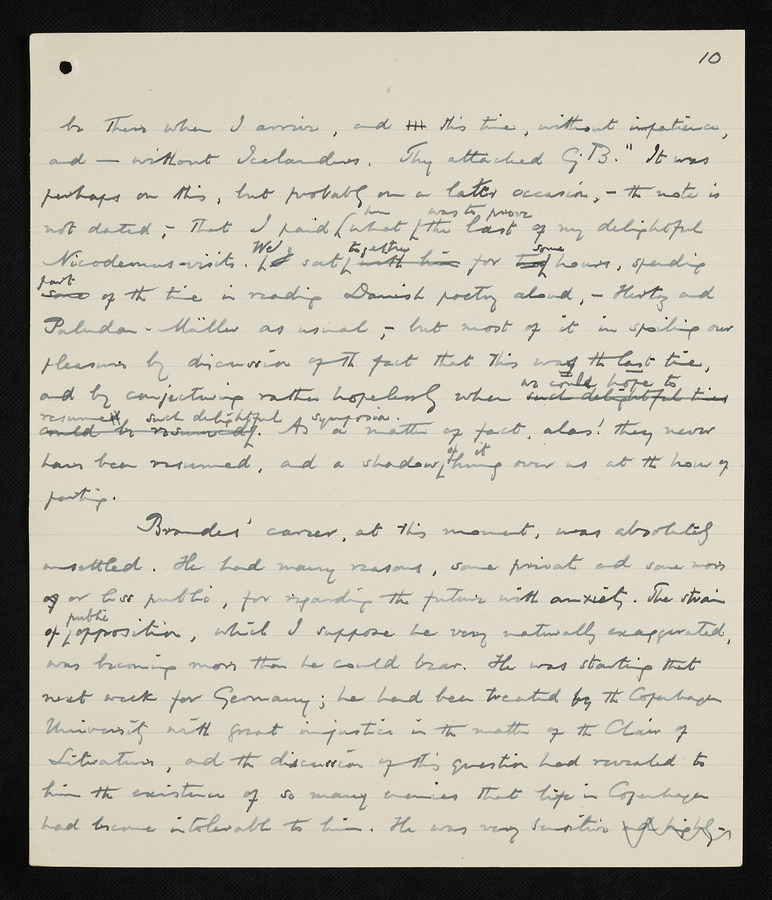 10
be there when I arrive, and this time, without impatience,
and — without Icelanders. Thy attached G. B." It was
perhaps on this, but probably on a later occasion, – the note is
not dated, – that I paid what was to prove the last of my delightful
Nicodemus-visits. We I sat together with him for some hours, spending
part some of the time in reading Danish poetry aloud, – Hertz and
Paludan-Müller as usual, – but most of it in spoiling our
pleasure by discussion of the fact that this was the last time,
and by conjecturing rather hopelessly when we could hope to such delightful times
resume such delightful symposia. could be resumed. As a matter of fact, alas! they never
have been resumed, and a shadow of it hung over us at the hour of
parting.
Brandes' career, at this moment, was absolutely
unsettled. He had many reasons, some private and some more
or less public, for regarding the future with anxiety. The strain
of public opposition, which I suppose he very naturally exaggerated,
was becoming more than he could bear. He was starting that
next week for Germany; he had been treated by the Copenhagen
University with great injustice in the matter of the Chair of
Literature, and the discussion of this question had revealed to
him the existence of so many enemies that life in Copenhagen
had become intolerable to him. He was very sensitive and highly-